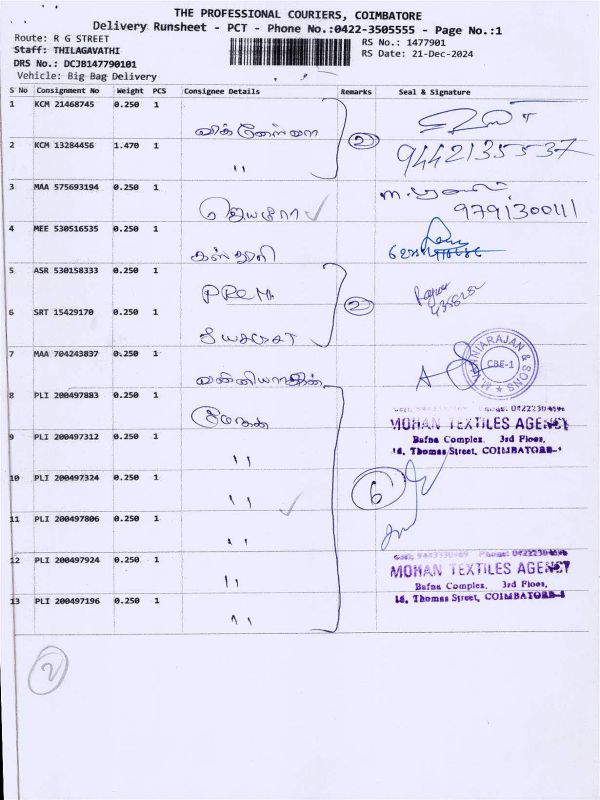 THE PROFESSIONAL COURIERS, COIMBATORE
Delivery Runsheet - PCT - Phone No.:0422-3505555 - Page No.:1
Route: R G STREET
RS No.: 1477901
Staff: THILAGAVATHI
RS Date: 21-Dec-2024
DRS No.: DCJB147790101
Vehicle: Big Bag Delivery
S No Consignment No Weight PCS Consignee Details Remarks Seal & Signature
1 KCM 21468745 0.250 1
2 KCM 13284456 1.470 1 " 2 9442135537
3 MAA 575693194 0.250 1
9791300111
4 MEE 530516535 0.250 1 கஸ்தூரி
5 ASR 530158333 0.250 1 PREM
6 SRT 15429170 0.250 1 2
7 MAA 704243837 0.250 1
CBE-1
8 PLI 200497883 0.250 1
MOHAN TEXTILES AGENCY
Bafna Complex, 3rd Floor,
18, Thomas Street, COIMBATORE-1
9 PLI 200497312 0.250 1 "
10 PLI 200497324 0.250 1 " 6
11 PLI 200497806 0.250 1 "
12 PLI 200497924 0.250 1 "
MOHAN TEXTILES AGENCY
Bafna Complex, 3rd Floor,
18, Thomas Street, COIMBATORE-1
13 PLI 200497196 0.250 1 "
2